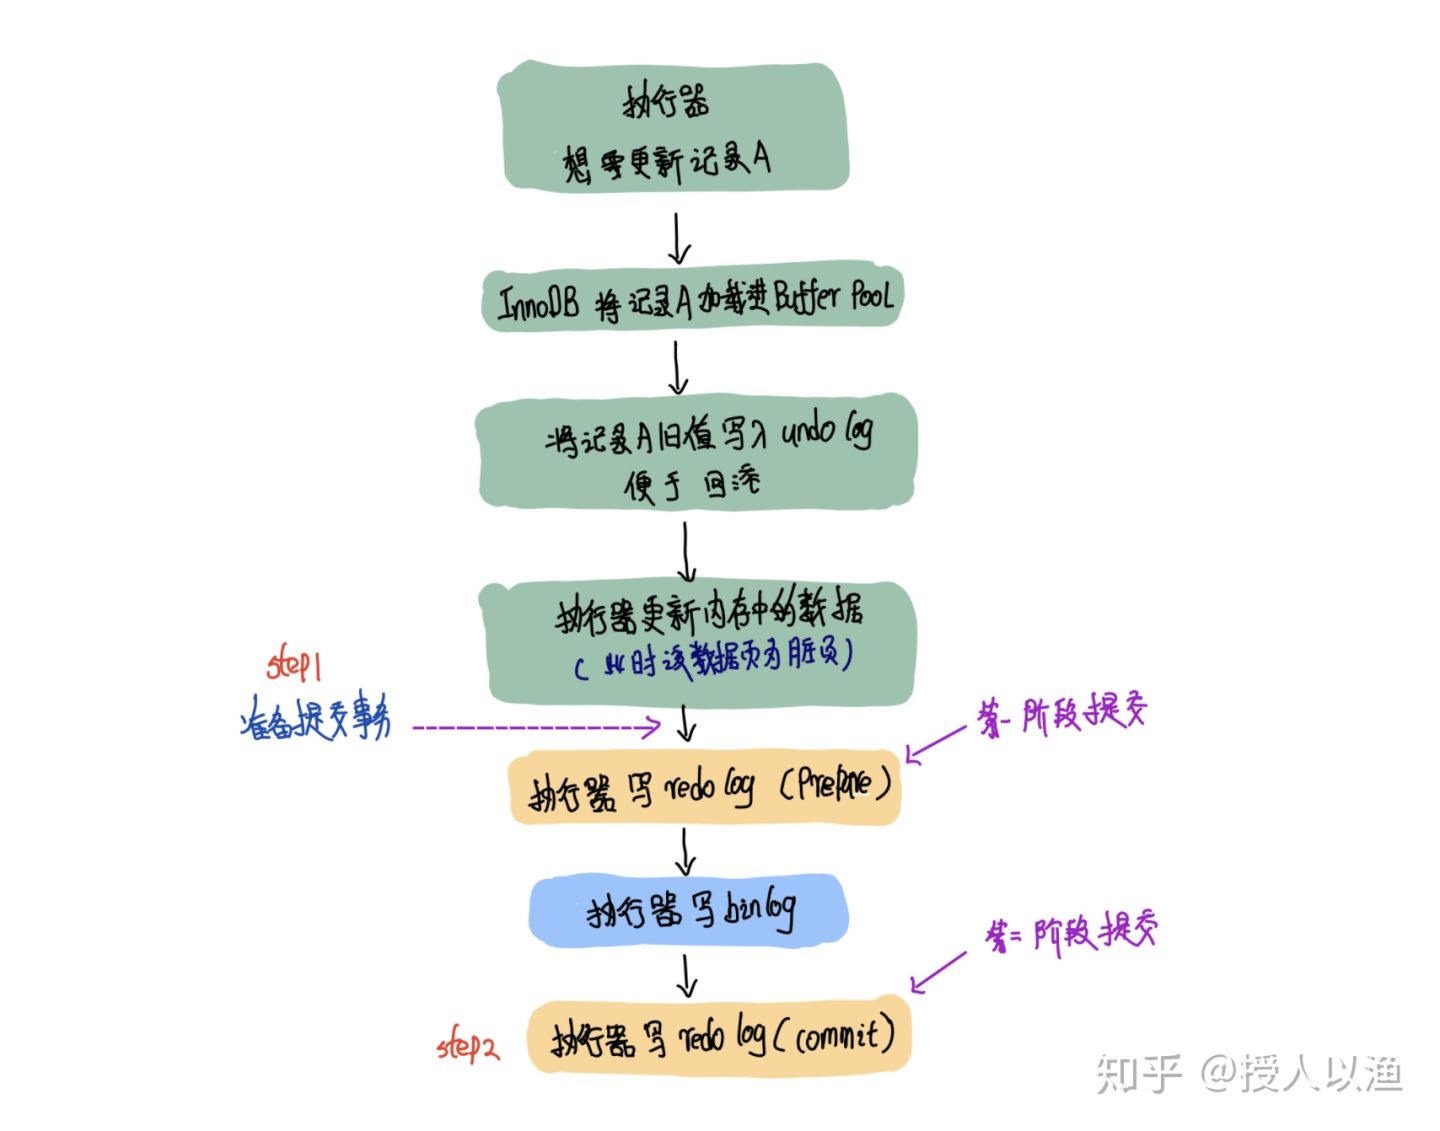 执行器
想要更新记录A
InnoDB 将记录A加载进Buffer Pool
将记录A旧值写入 undo log
便于回滚
执行器更新内存中的数据
(此时该数据页为脏页)
step1
准备提交事务
第一阶段提交
执行器写redo log (Prepare)
执行器写binlog
第二阶段提交
step2
执行器写redo log(commit)
知乎 @授人以渔